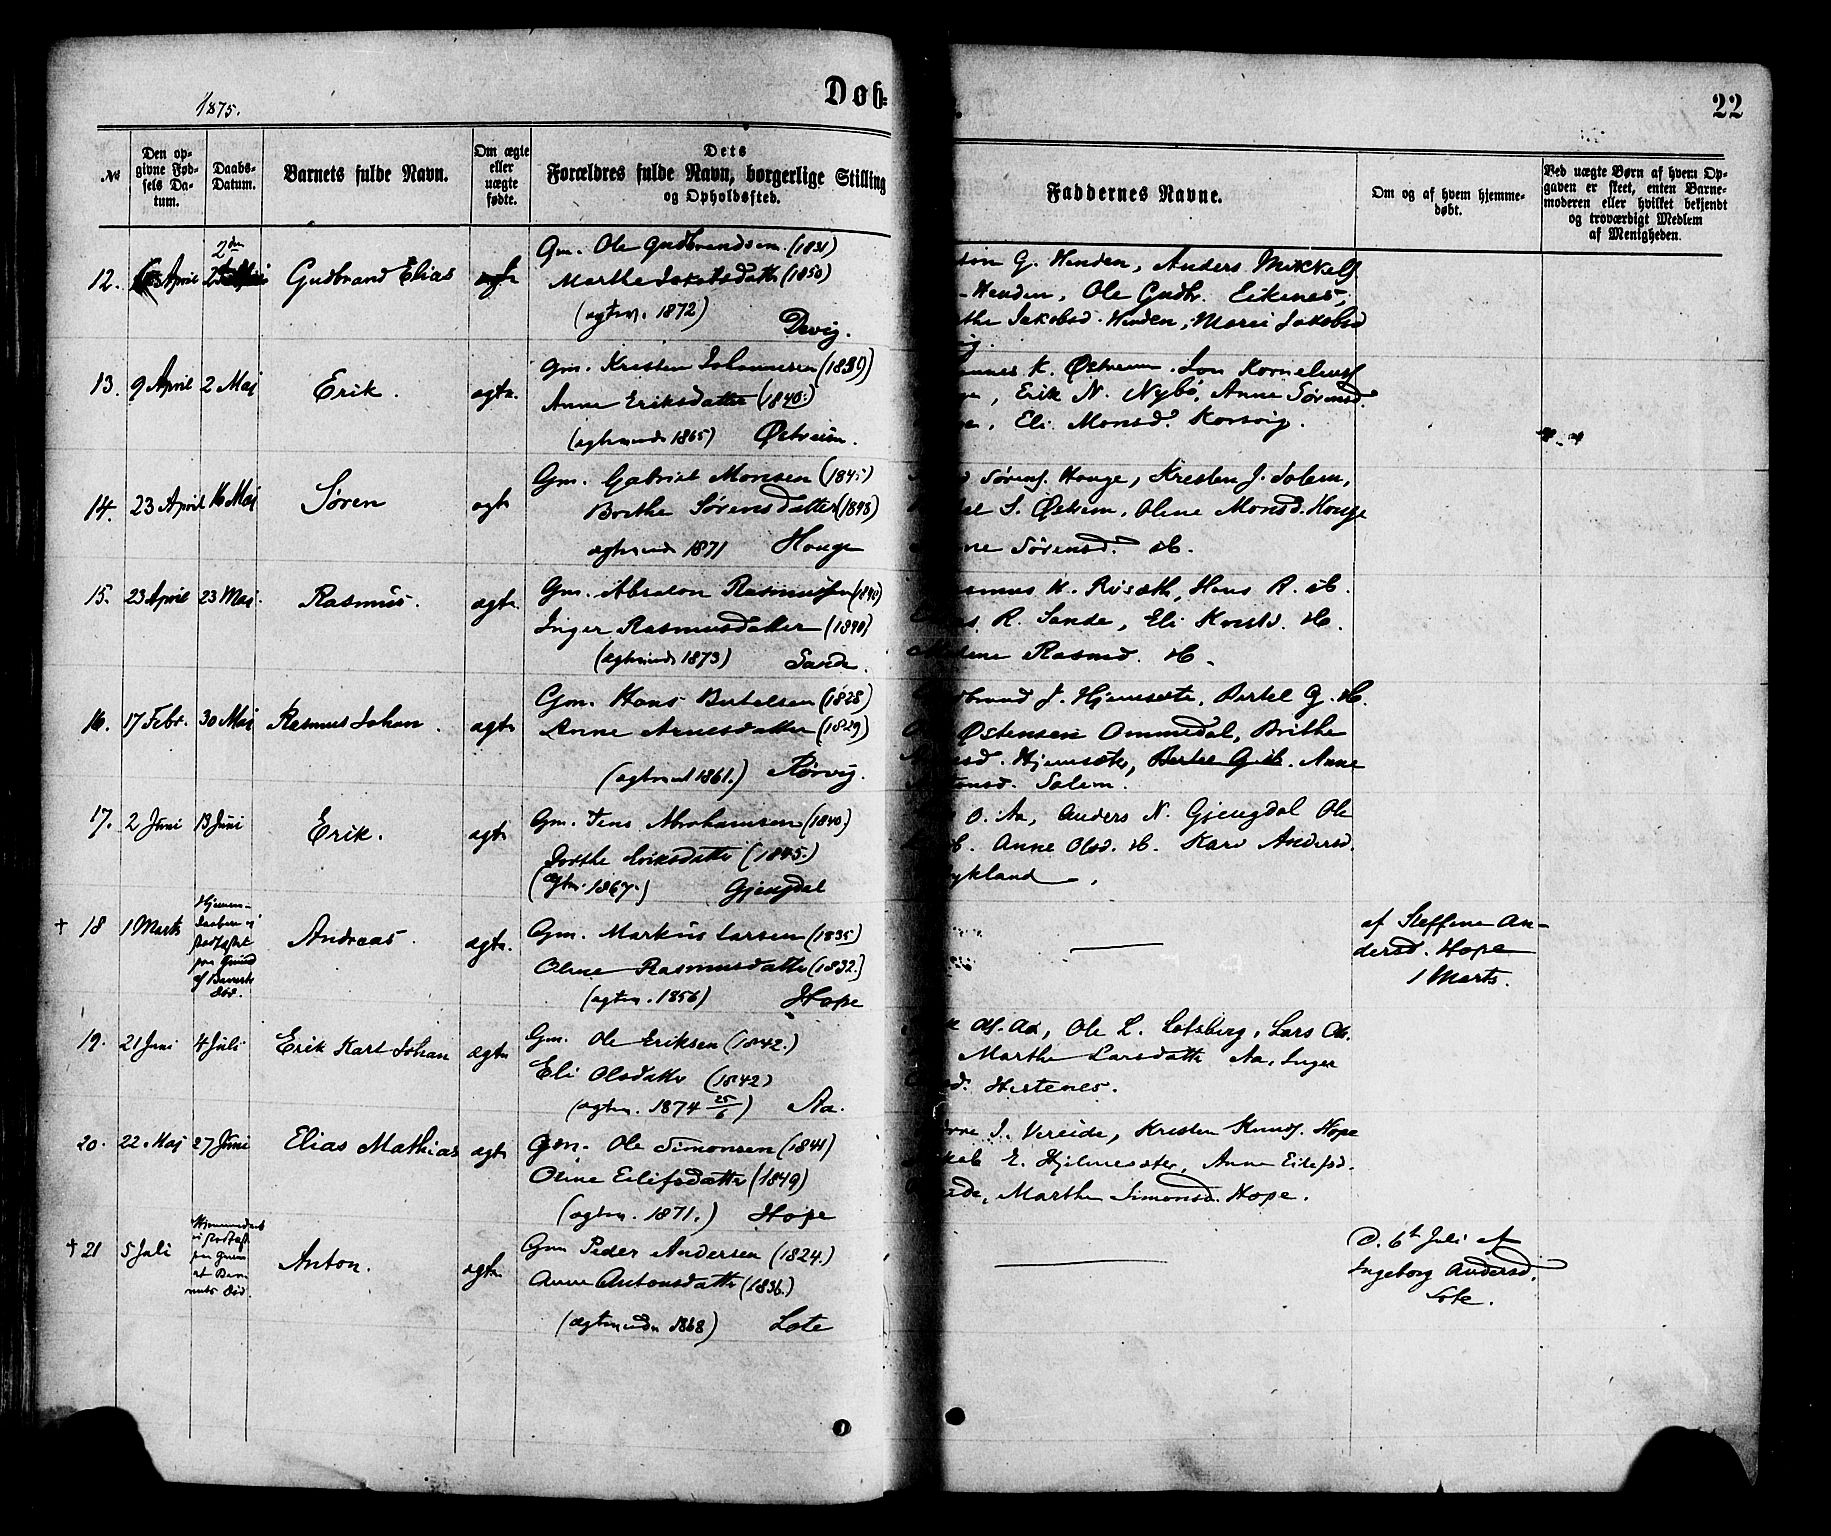 1875.
Døb-
22
№
Den op-
givne Fød-
sels Da-
tum.
Daabs-
Datum.
Barnets fulde Navn.
Om ægte
eller
uægte
fødte.
Dets
Forældres fulde Navn, borgerlige Stilling
og Opholdssted.
Faddernes Navne.
Om og af hvem hjemme-
døbt.
Ved uægte Børn af hvem Op-
gaven er skeet, enten Barne-
moderen eller hvilket bekjendt
og troværdigt Medlem
af Menigheden.
12. April Gudbrand Elias
Gm. Ole Gudbrandsen (1831)
Marthe Jakobsdatter (1850)
(ægtev. 1872)
G. Henden, Anders Mikkels
Henden, Ole Gudbr. Eikenes,
Jakobsd. Henden, Marei Jakobsd
13. 9 April 2 Maj Erik. ægte.
Gm. Kristen Johannesen (1839)
Anne Eriksdatter (1840)
(ægteviede 1865) Østreim.
K. Østreim. Jon Kornelius
Erik N. Nybø, Anne Sørensd.
Eli Monsd. Korsvig.
14. 23 April 16 Maj Søren ægte
Gm. Gabriel Monsen (1845)
Birthe Sørensdatter (1848)
ægteviede 1871 Houge
Sørens. Houge, Kresten J. Solem,
S. Østreim, Oline Monsd. Houge
Sørensd. ib.
15. 23 April 23 Maj. Rasmus. ægte.
Gm. Absalon Rasmussen (1840)
Inger Rasmusdatter (1840)
(ægteviede 1873) Sande.
K. Risæth, Hans R. ib.
R. Sande, Eli Krisd. ib.
Rasmd. ib.
16. 17 Febr. 30 Maj Rasmus Johan. ægte
Gm. Hans Bertelsen (1828)
Anne Arnesdatter (1829)
(ægtev 1861.) Rørvig.
J. Hjemsæter, Bertel G. ib.
Østensen Ommedal, Brithe
Hjemsæter, Bertel G. ib. Anne
Solem.
17. 2 Juni 13 Juni Erik. ægte
Gm. Jens Abrahamsen (1840)
Dorthe Eriksdatter (1845.)
(ægtev. 1867.) Gjengdal
O. Aa, Anders N. Gjengdal Ole
Anne Olsd. ib. Kari Andersd.
Mykland.
† 18 1 Marts
Hjemme-
daaben ei
stadfæstet
paa Grund
af Barnets
Død.
Andreas. ægte.
Gm. Markus Larsen (1835)
Oline Rasmusdatter (1832)
(ægtev. 1856) Hope
af Steffine An-
dersd. Hope
1 Marts.
19. 21 Juni 4 Juli Erik Karl Johan ægte
Gm. Ole Eriksen (1842.)
Eli Olsdatter (1842)
(ægtev. 1874 25/6) Aa.
Aa, Ole L. Lotsberg, Lars Ol.
Marthe Larsdatter Aa, Inger
Hestenes.
20. 22. Maj 27 Juni Elias Mathias ægte
Gm. Ole Simonsen (1841)
Oline Eilifsdatter (1849)
(ægtev. 1871.) Hope
J. Vereide, Kristen Knuds. Hope
E. Hjelmesæter, Anne Eilefsd.
Marthe Simonsd. Hope.
† 21 5 Juli
Hjemmedaab
ei stadfæst
paa Grund
af Bar
nets Død.
Anton. ægte
Gm Peder Andersen (1824.)
Anne Antonsdatter (1836.)
(ægteviede 1868) Lote
d. 6te Juli af
Ingeborg Andersd.
Lote.